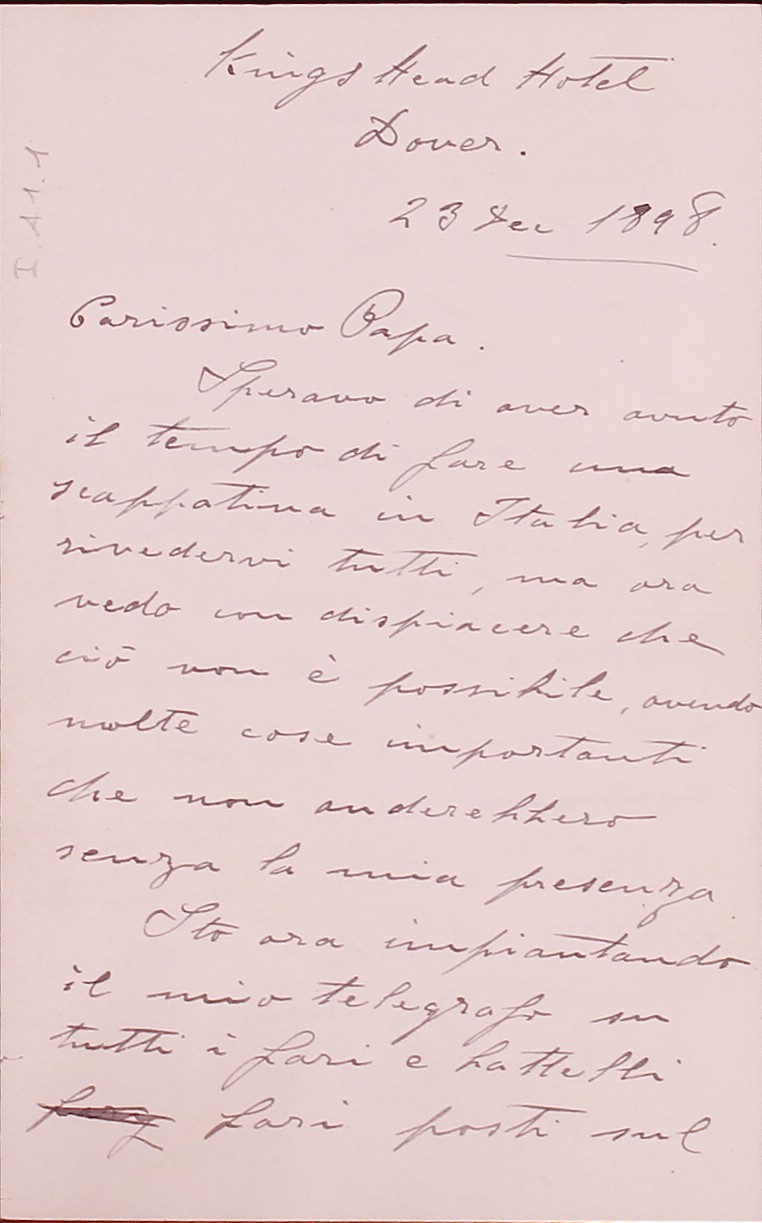 Kings Head Hotel
Dover.
23 Dec 1898.
I.A1.1
Carissimo Papa.
Speravo di aver avuto
il tempo di fare una
scappatina in Italia, per
rivedervi tutti, ma ora
vedo con dispiacere che
ciò non è possibile, avendo
molte cose importanti
che non anderebbero
senza la mia presenza.
Sto ora impiantando
il mio telegrafo su
tutti i fari e battelli
fari posti sul